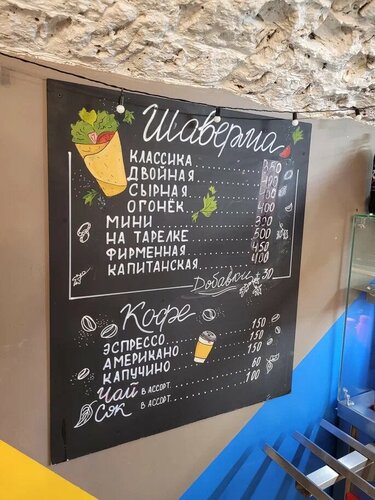 Шаверма
КЛАССИКА 350
ДВОЙНАЯ 400
СЫРНАЯ 400
ОГОНЁК 400
МИНИ 300
НА ТАРЕЛКЕ 500
ФИРМЕННАЯ 450
КАПИТАНСКАЯ 400
Добавки 30
Кофе
ЭСПРЕССО 150
АМЕРИКАНО 150
КАПУЧИНО 150
Чай В АССОРТ. 60
Сок В АССОРТ. 100